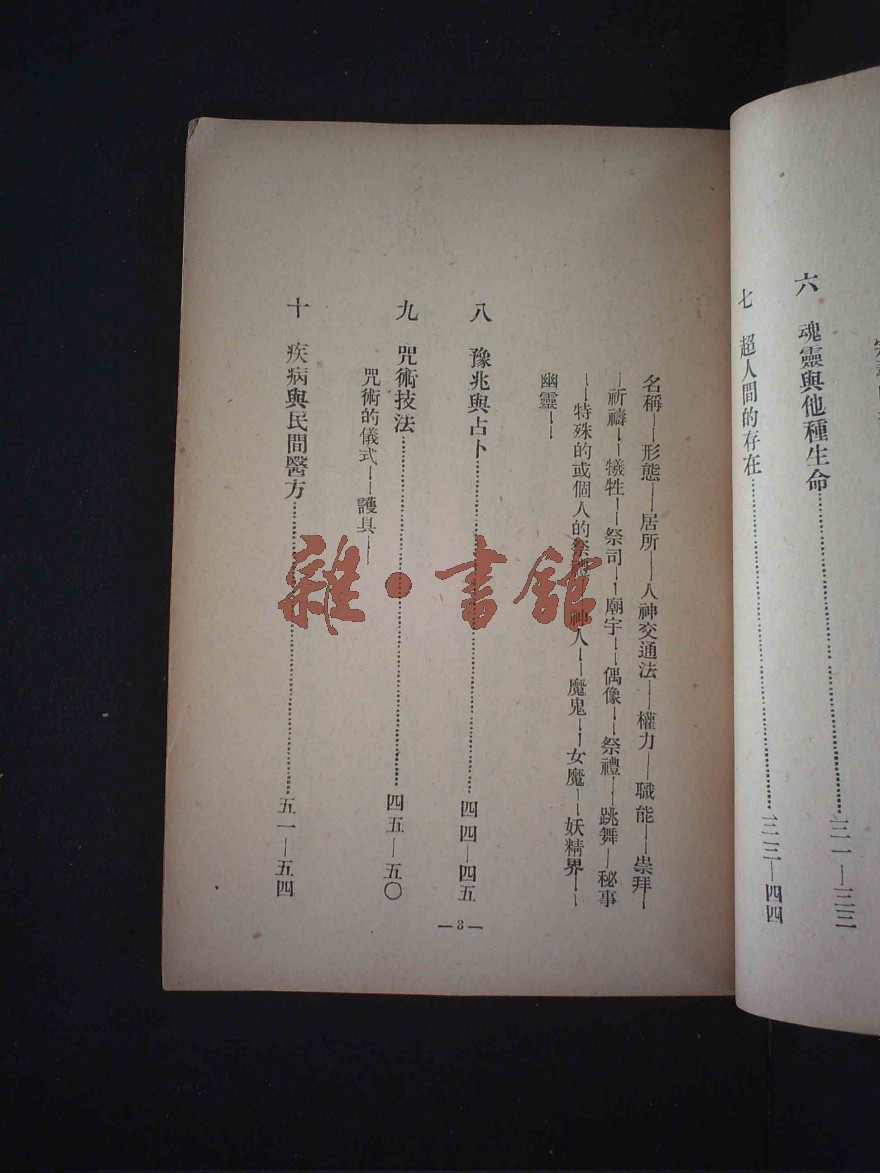 六　魂靈與他種生命……三一—三三
七　超人間的存在……三三—四四
名稱——形態——居所——人神交通法——權力——職能——崇拜—
—祈禱——犧牲——祭司——廟宇——偶像——祭禮——跳舞——秘事
——特殊的或個人的祭禮——神人——魔鬼——女魔——妖精界——
幽靈——
八　豫兆與占卜……四四—四五
九　咒術技法……四五—五〇
咒術的儀式——護具——
十　疾病與民間醫方……五一—五四
—3—
雜·書館